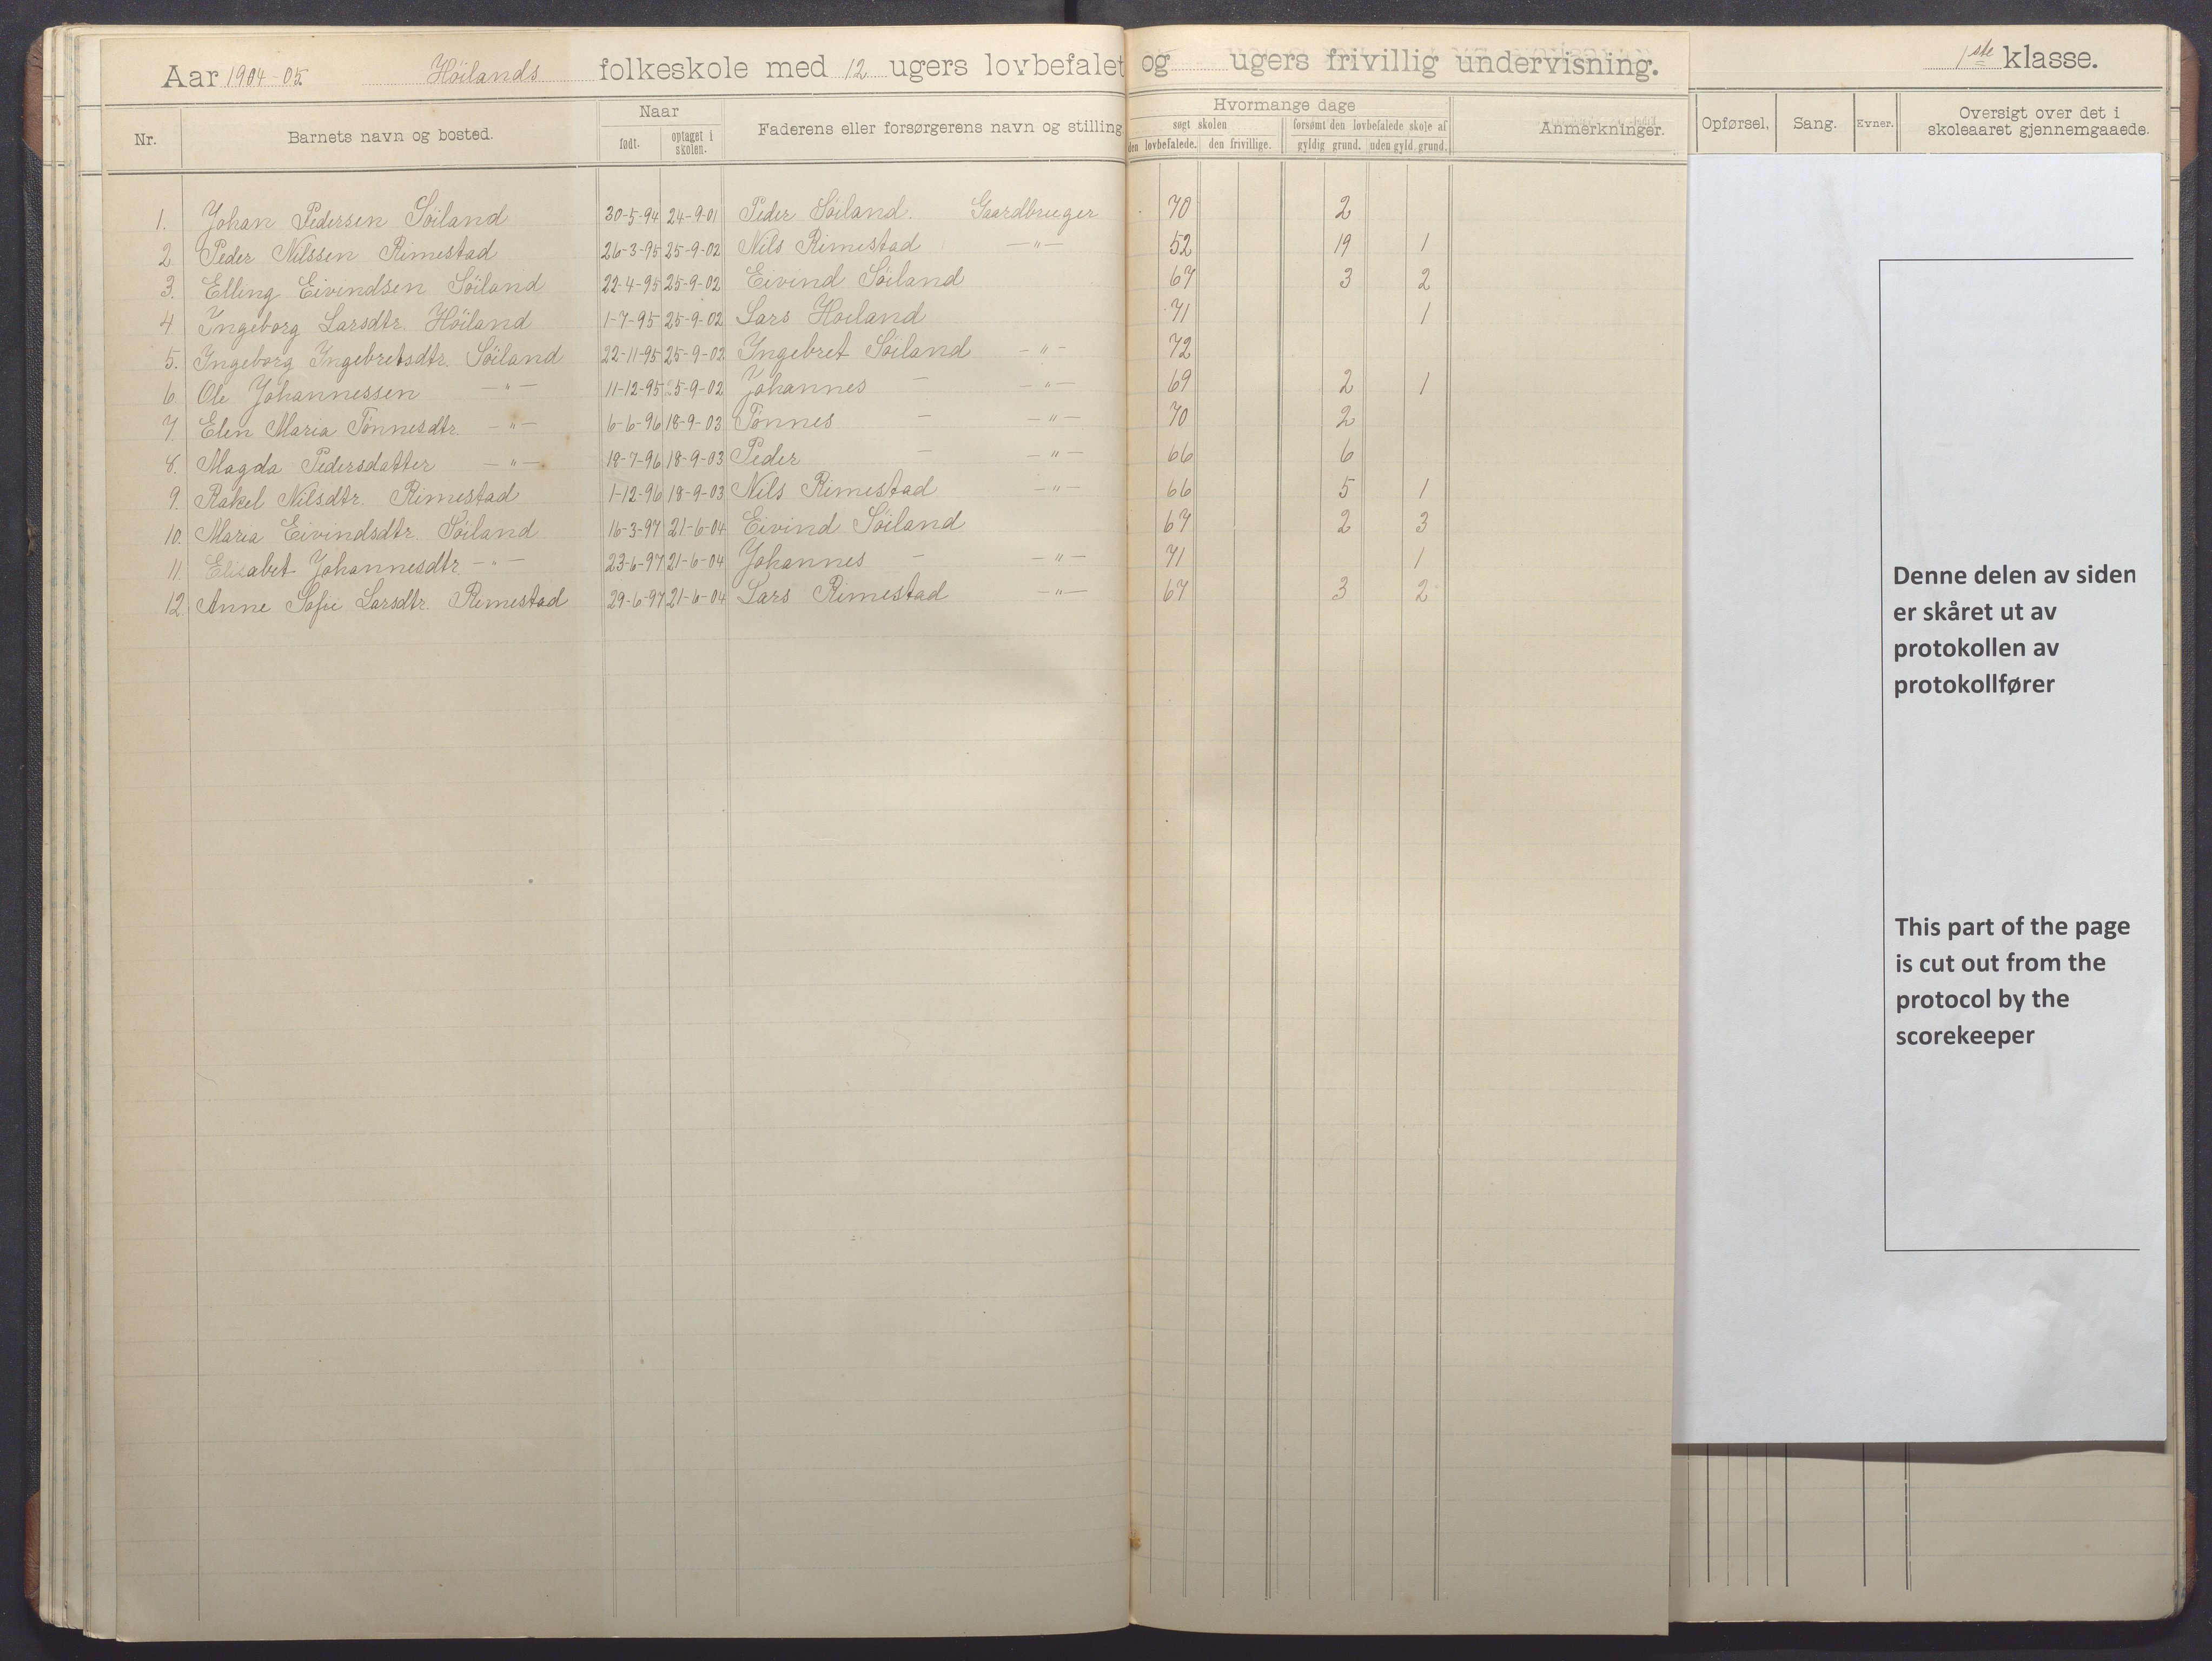 Aar 1904-05. Höilands folkeskole med 12 ugers lovbefalet og ugers frivillig undervisning. 1ste klasse.
Nr. Barnets navn og bosted. Naar født. optaget i skolen. Faderens eller forsørgerens navn og stilling. Hvormange dage søgt skolen den lovbefalede. den frivillige. forsømt den lovbefalede skole af gyldig grund. uden gyld. grund. Anmerkninger. Opførsel. Sang. Evner. Oversigt over det i skoleaaret gjennemgaaede.
1. Johan Pedersen Söiland 30-5-94 24-9-01 Peder Söiland. Gaardbruger 70 2
2 Peder Nilssen Rimestad 26-3-95 25-9-02 Nils Rimestad -"- 52 19 1
3. Elling Eivindsen Söiland 22-4-95 25-9-02 Eivind Söiland 67 3 2
4. Ingeborg Larsdtr. Höiland 1-7-95 25-9-02 Lars Höiland 71 1
5. Ingeborg Ingebretsdtr. Söiland 22-11-95 25-9-02 Ingebret Söiland -"- 72
6. Ole Johannessen -"- 11-12-95 25-9-02 Johannes - -"- 69 2 1
7. Elen Maria Tönnesdtr. -"- 6-6-96 18-9-03 Tönnes - -"- 70 2
8. Magda Pedersdatter -"- 18-7-96 18-9-03 Peder - -"- 66 6
9. Rakel Nilsdtr. Rimestad 1-12-96 18-9-03 Nils Rimestad -"- 66 5 1
10. Maria Eivindsdtr. Söiland 16-3-97 21-6-04 Eivind Söiland 67 2 3
11 Elisabet Johannesdtr. -"- 23-6-97 21-6-04 Johannes - -"- 71 1
12. Anne Sofie Larsdtr. Rimestad 29-6-97 21-6-04 Lars Rimestad -"- 67 3 2
Denne delen av siden
er skåret ut av
protokollen av
protokollfører
This part of the page
is cut out from the
protocol by the
scorekeeper